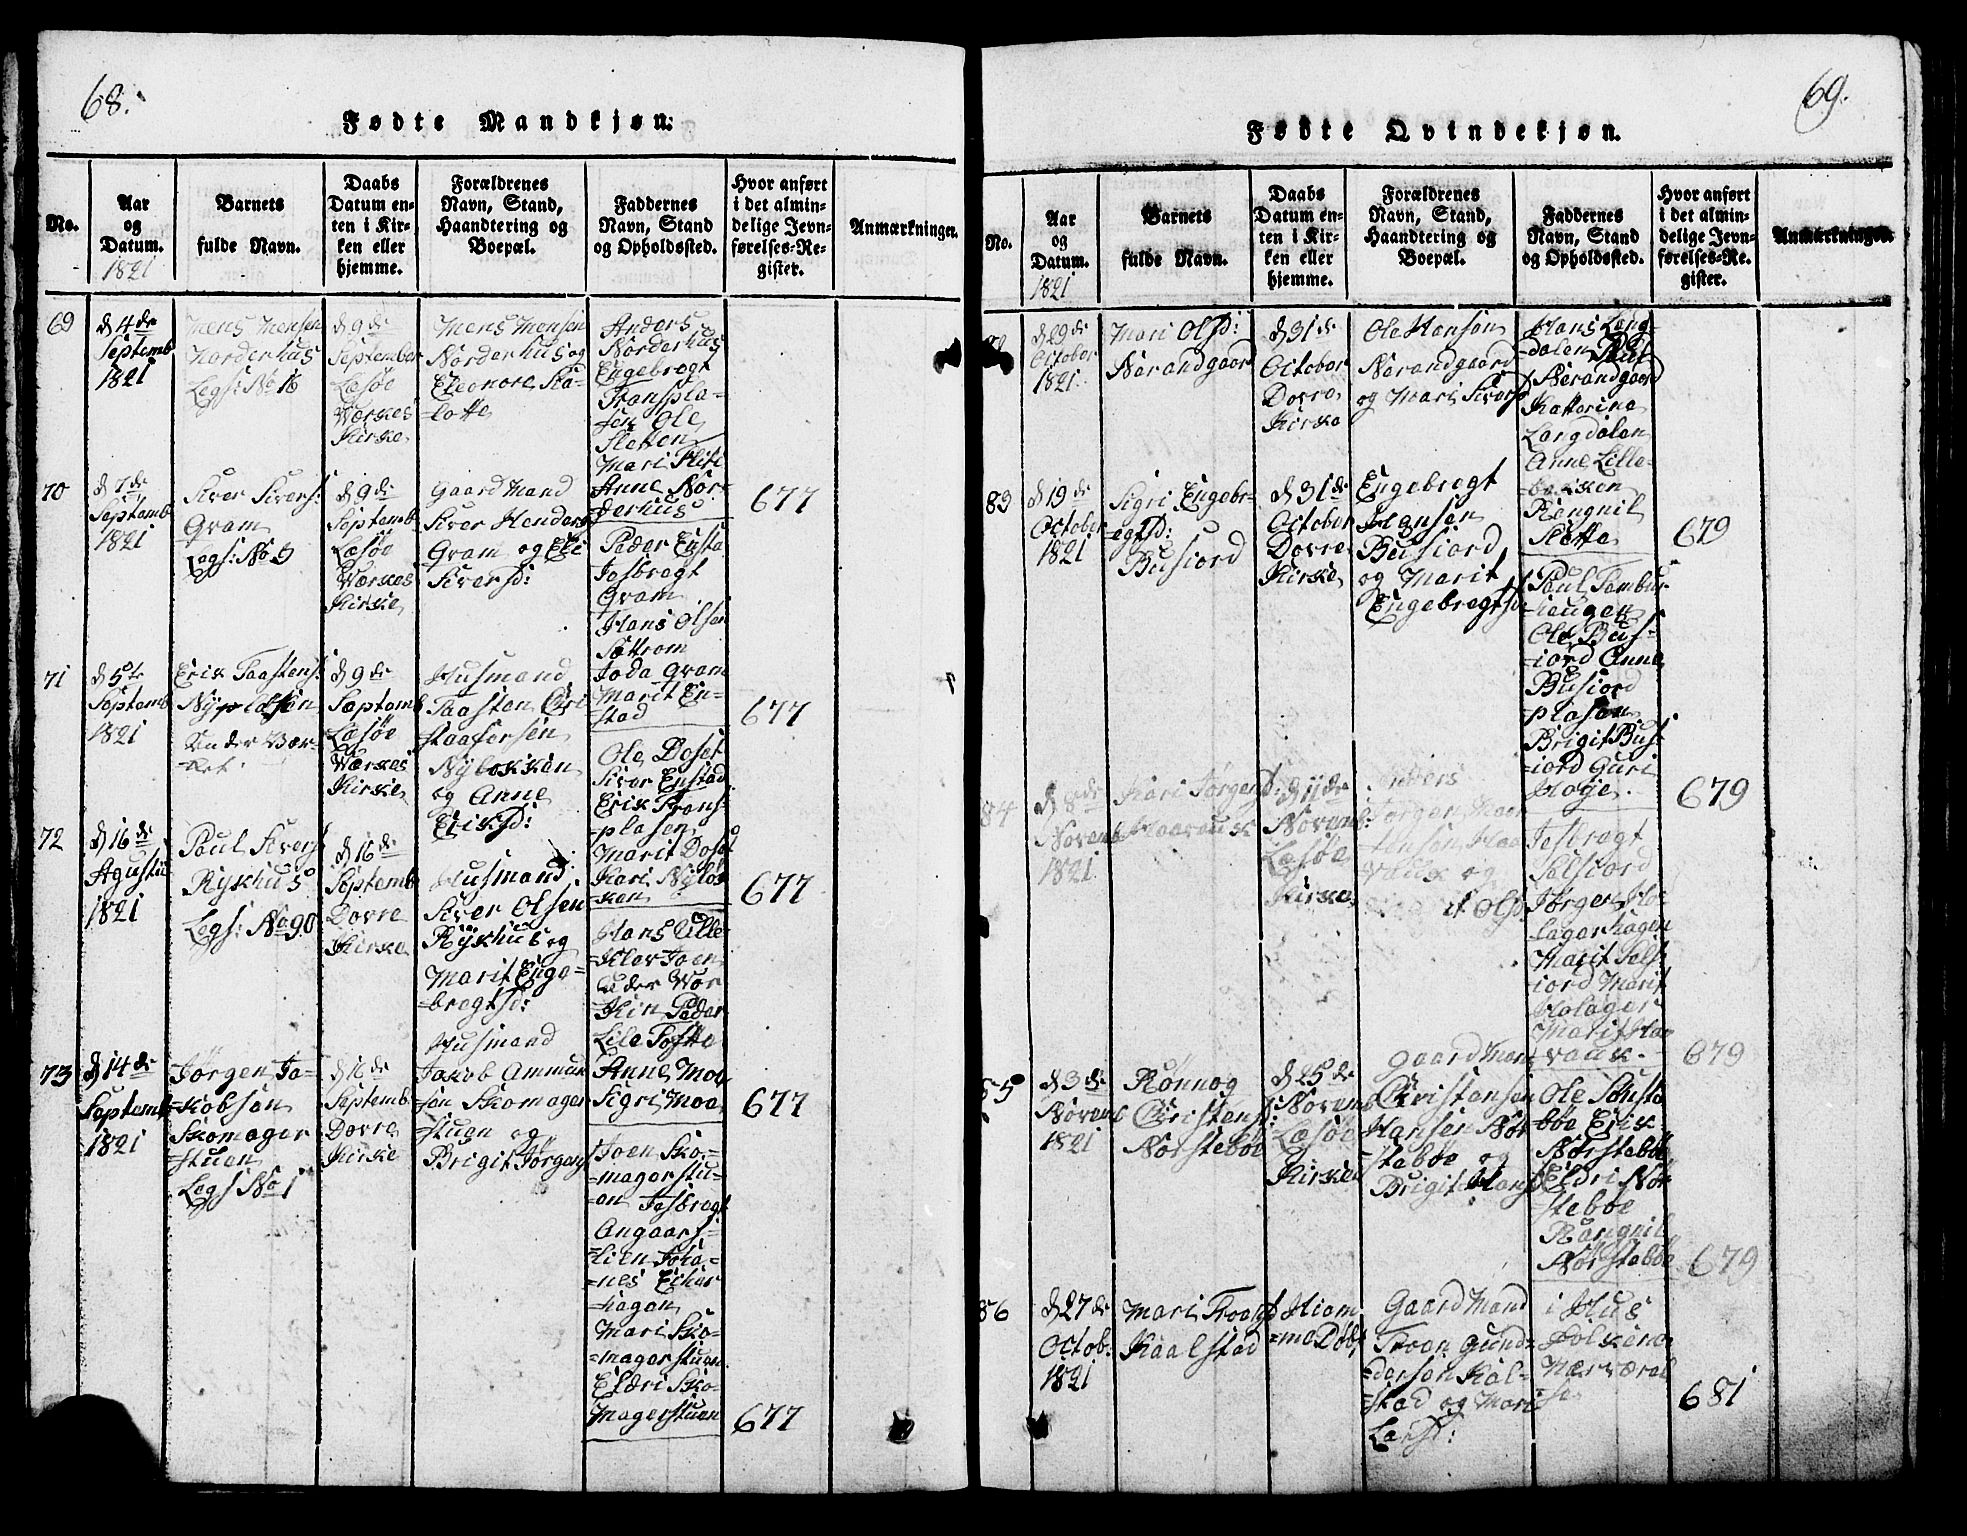 68.
Fødte Mandkjøn.
No.
Aar
og
Datum.
1821
Barnets
fulde Navn.
Daabs
Datum en-
ten i Kir-
ken eller
hjemme.
Forældrenes
Navn, Stand,
Haandtering og
Boepæl.
Faddernes
Navn, Stand
og Opholdssted.
Hvor anført
i det almin-
delige Jevn-
førelses-Re-
gister.
Anmærkninger.
69
d 4de
Septemb
1821
Mens Monsen
Norderhus
Legs: No 16
d 9de
September
Læsøe
Værkes
Kirke
Mens Monsen
Norderhus og
Eleonore
=lotte
Anders
Norderhus
Engebregt
Transpla-
sen Ole
Sletten
Mari
Anne Nor-
derhus
677
70
d 7de
Septemb
1821
Siver Sivers:
Gram
Legs: No 9
d 9de
Septemb
Læsøe
Værkes
Kirke
Gaard Mand
Siver Henders
Gram og Eli
Siversd:
Peder Eysta
Josbregt
Gram
Hans Olsen
Søttrom
Joda Gram
Marit En-
stad
677
71
d 5te
Septemb
1821
Erik Taastens:
d 9de
Septemb
Læsøe
Værkes
Kirke
Husmand
Taasten Cri
staafersen
Nyløkken
og Anne
Eriksd:
Ole Doset
Siver Enstad
Erik Trans-
plasen
Marit Doset
Kari Nyløk
ken
677
72
d 16de
Agustu
1821
Paul Sivers
Rykhus
Legs: No 90
d 16de
Septemb
Dovre
Kirke
Husmand
Siver Olsen
Rykhus og
Marit Enge-
=bregtsd:
Hans Lille-
Klev Joen
Peder
Lile Tofte
Anne Moe
Sigri Moe
677
73
d 14de
Septemb
1821
Jørgen Ja-
=kobsen
Skomager
stuen
Legs No 1
d 16de
Septemb
Dovre
Kirke
Husmand
Jakob Ammun
sen Skomager
stuen og
Brigit Jørgens
Joen Sko-
=magerstu-
=en Josbregt
Angaars-
=lien Joha-
=nes Eiker
hagen
Mari Sko-
=magerstuen
Eldri Sko-
=magerstuen
677
69.
Fødte Qvindekjøn.
No.
Aar
og
Datum.
1821
Barnets
fulde Navn.
Daabs
Datum en-
ten i Kir-
ken eller
hjemme.
Forældrenes
Navn, Stand,
Haandtering og
Boepæl.
Faddernes
Navn, Stand
og Opholdssted.
Hvor anført
i det almin-
delige Jevn-
førelses-Re-
gister.
Anmærkninger.
d 29de
October
1821
Mari Olsd:
Norandgaard
d 31de
October
Dovre
Kirke
Ole Hansen
Norandgaard
og Mari Sivers
Hans Lang-
dalen
Norandgaard
Katterine
Langdalen
Anne Lille-
=bakken
Rengnil
Slette
679
83
d 19de
October
1821
Sigri Engebr-
=egtsd:
Busiord
d 31de
October
Dovre
Kirke
Engebregt
Hansen
Busiord
og Marit
Engebregtsd
Paul Tambur
=haugen
Ole Bus-
=iord Anne
Busiord
plasen
Brigit Bus
=iord Guri
Hage.
679
84
d 8de
Novemb
1821
Kari Jørgensd:
Haavauk
d 11de
Novemb:
Læsøe
Kirke
Jørgen
og
Olsd
Josbregt
Selsiord
Jørgen Ho
lager hagen
Marit Sels
iord Marit
Holager
Marit Haa
vauk.
679
85
d 3de
Novemb
1821
Rønnog
Christens
Norstebøe
d 25de
Novemb
Læsøe
Kirke
Gaard Man
Christensen
Hansen Nor
stebøe og
Brigit Hansd
Ole Sønste
bøe Erik
Norstebøe
Eldri Nor
stebøe
Rangnil
Norstebøe
679
86
d 27de
Octob:
1821
Mari Trons
Kaalstad
Hiem
=me Døbt
Gaard Mand
Tron Gund=
=dersen Kol-
stad og Mari
Larsd:
i Hus
folkene
Nærværel
se
681